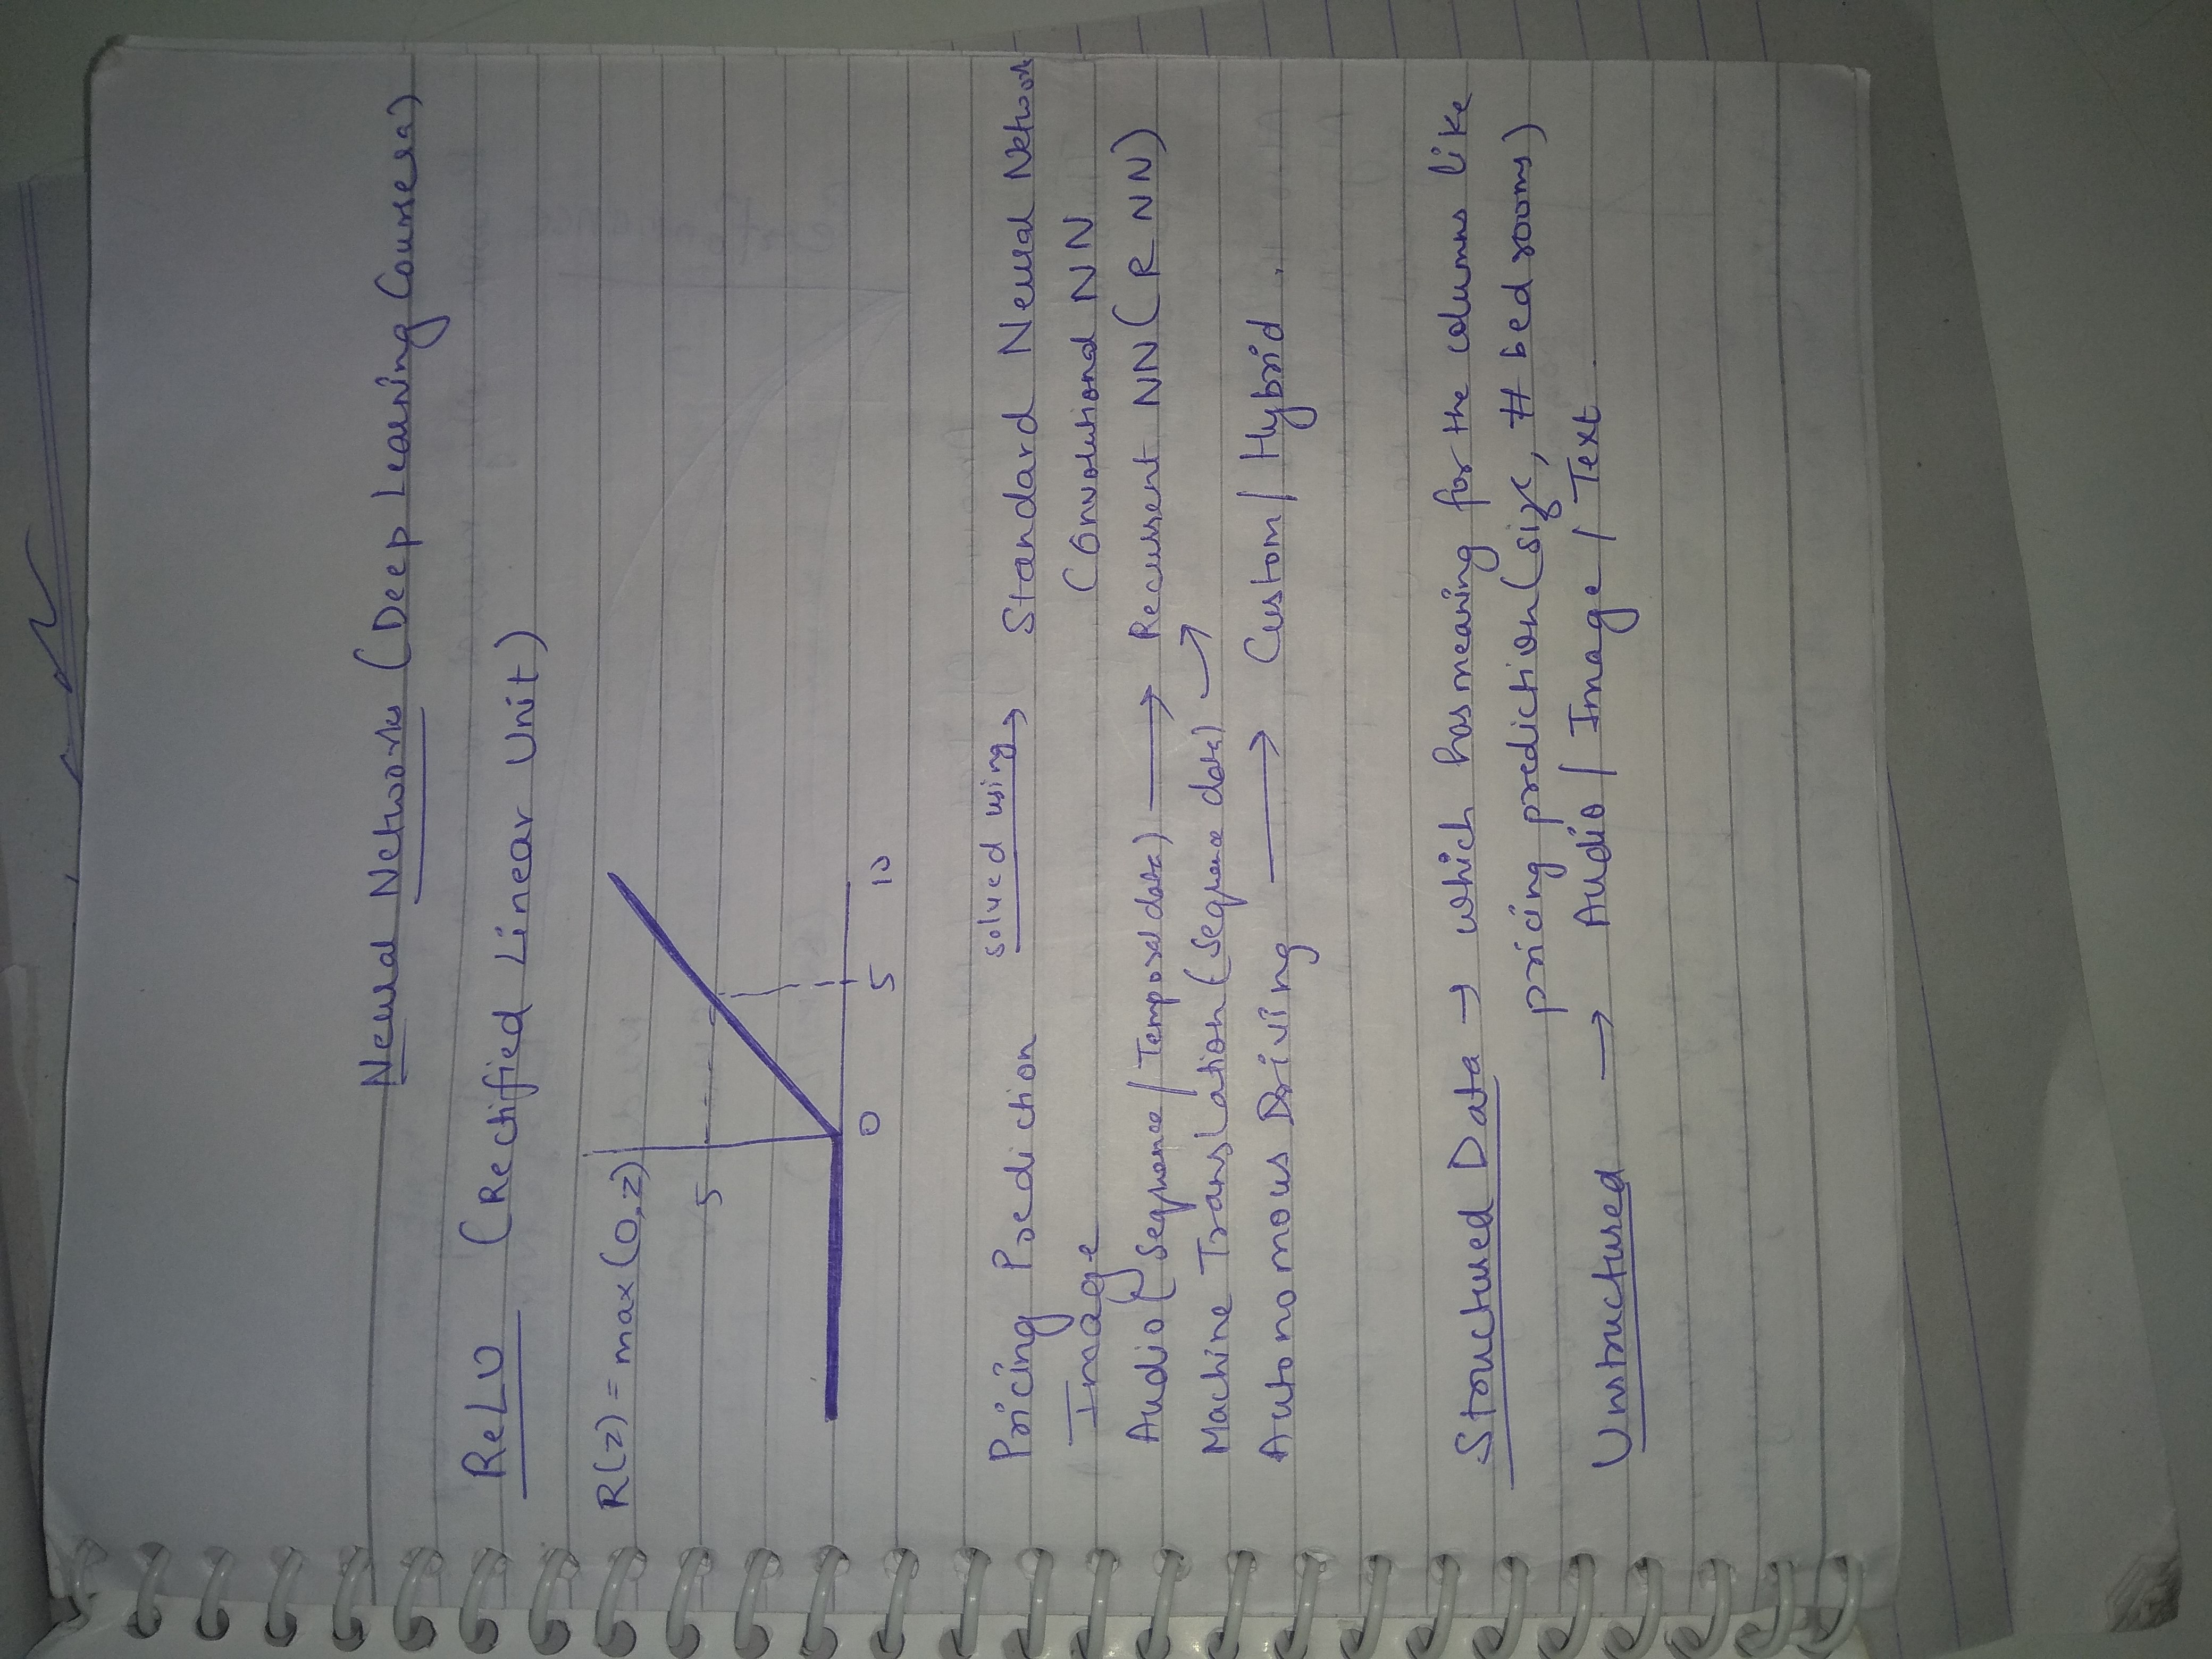 Neural Networks (Deep Learning Coursera)
ReLU (Rectified Linear Unit)
R(z) = max(0,z)
5
0 5 10
Pricing Prediction solved using → Standard Neural Network
Image Convolutional NN
Audio (Sequence/Temporal data) → Recurrent NN (RNN)
Machine Translation (Sequence data) →
Autonomous Driving → Custom/Hybrid.
Structured Data → which has meaning for the columns like
pricing prediction (size, # bedrooms)
Unstructured → Audio/Image/Text.